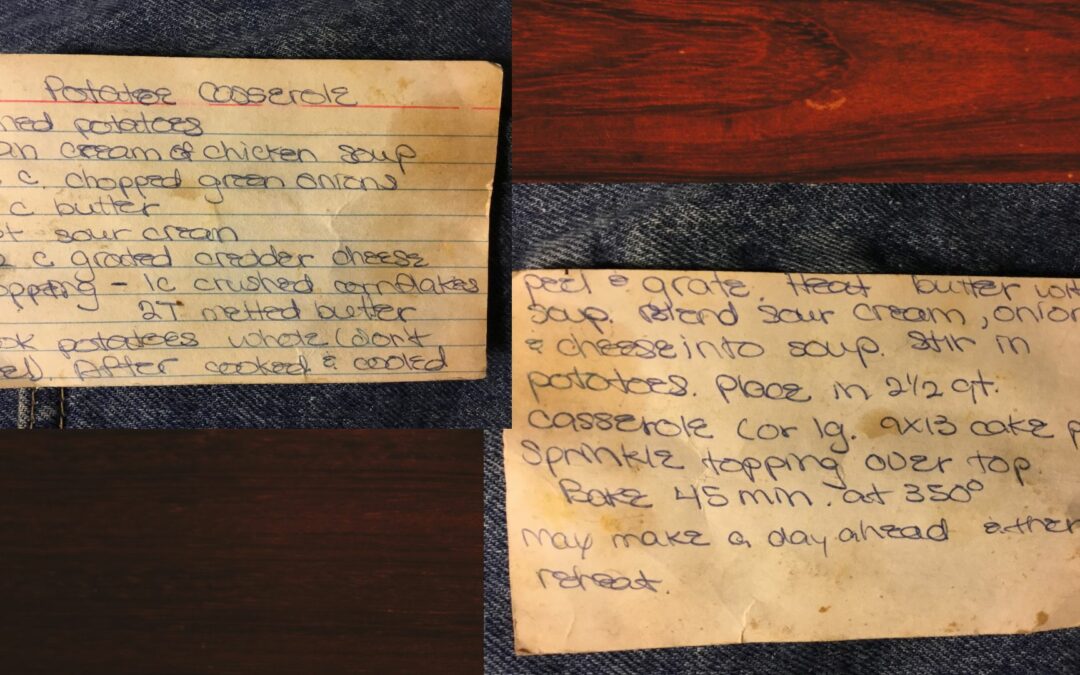 Potatoe Casserole
potatoes
cream of chicken soup
c. chopped green onions
c butter
sour cream
c graded chedder cheese
- 1c crushed cornflakes
2T melted butter
potatoes whole (don't
After cooked & cooled
peel & grate. Heat butter with
soup. Blend sour cream, onion
& cheese into soup. Stir in
potatoes. Place in 2 1/2 qt.
casserole (or lg. 9x13 cake
Sprinkle topping over top.
Bake 45 min. at 350°
may make a day ahead & then
reheat.